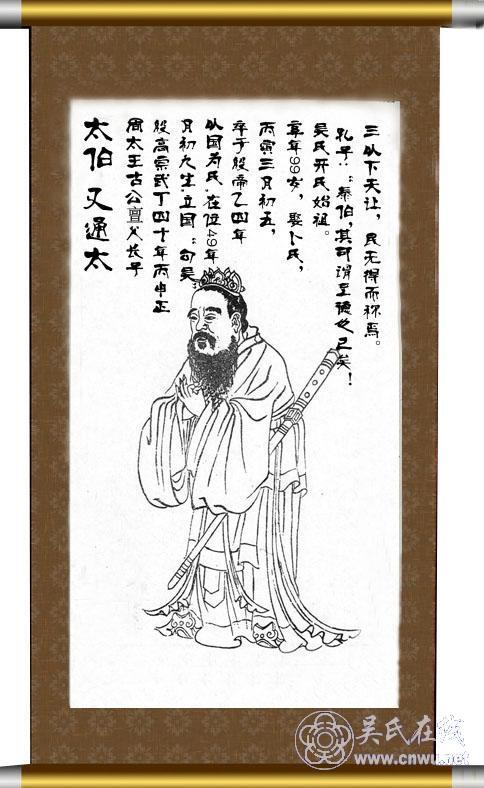 太伯 又通太
周太王古公亶父长子
殷高宗武丁四十年丙申正
月初九生.立国“句吴
以国为氏.在位49年
卒于殷帝乙四年
丙寅三月初五，
享年99岁，娶卜氏，
吴氏开氏始祖。
孔子：“泰伯，其可谓至德也已矣！
三以下天让，民无得而称焉。
吴氏在线
www.cnwu.net